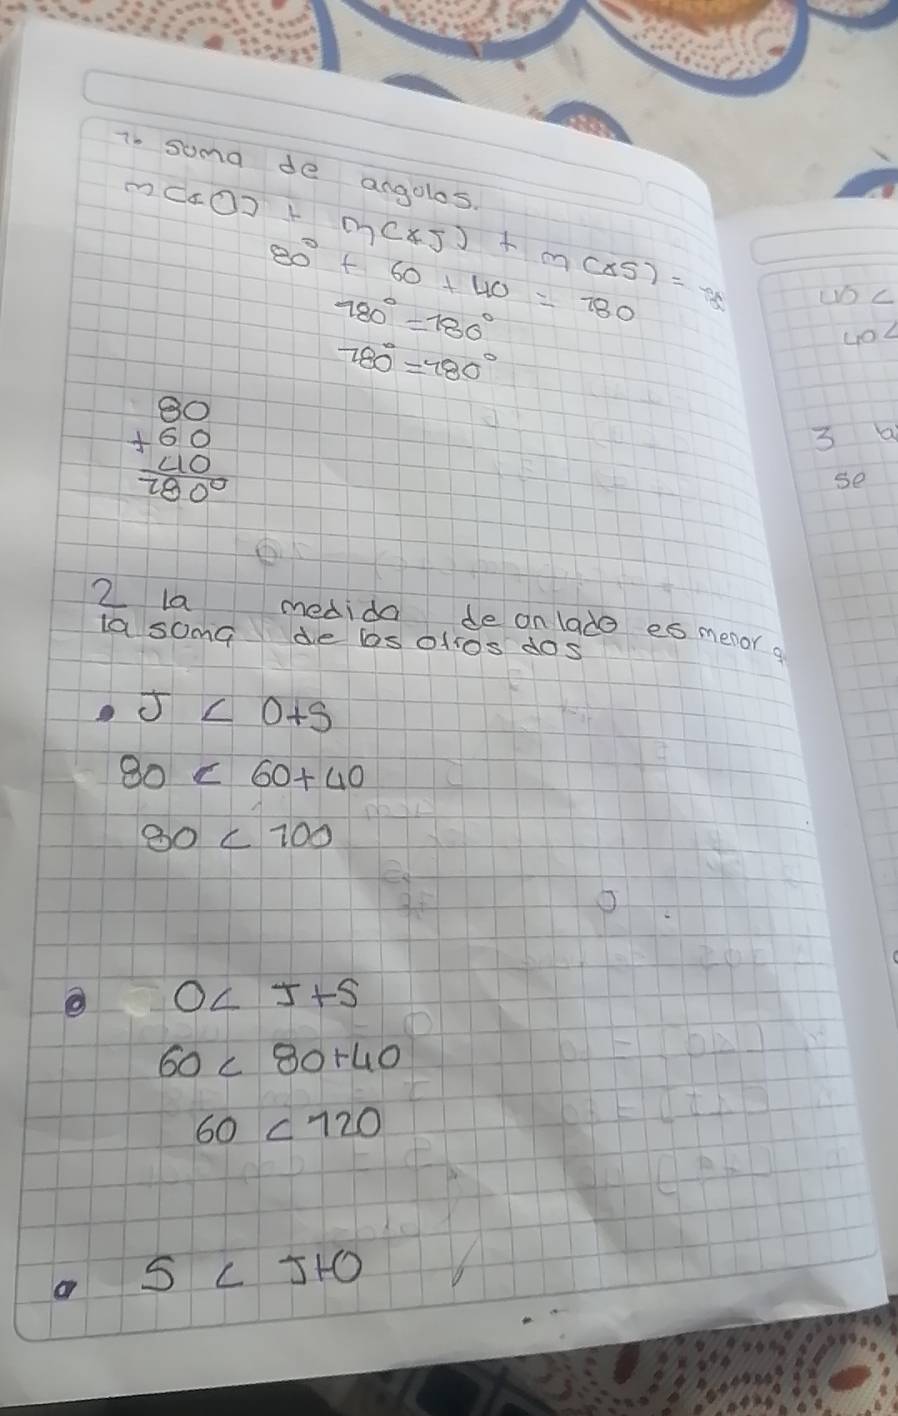 1. suma de angulos.
m(∡O) + m(∡J) + m(∡S) = 180
80° + 60 + 40 = 180
180° = 180°
180° = 180°
80
+60
40
180°
2 la medida de un lado es menor q
la soma de los otros dos
• J < O+S
80 < 60+40
80 < 100
• O < J+S
60 < 80+40
60 < 120
• S < J+O
40 <
40 <
3
se